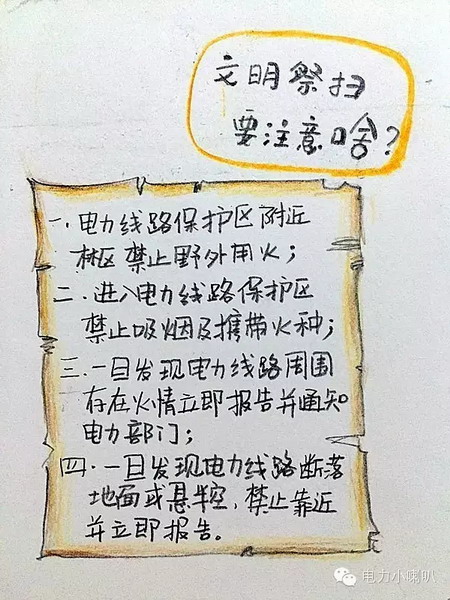 文明祭扫
要注意啥?
一.电力线路保护区附近
林区禁止野外用火;
二.进入电力线路保护区
禁止吸烟及携带火种;
三.一旦发现电力线路周围
存在火情立即报告并通知
电力部门;
四.一旦发现电力线路断落
地面或悬半空,禁止靠近
并立即报告。
电力小喇叭